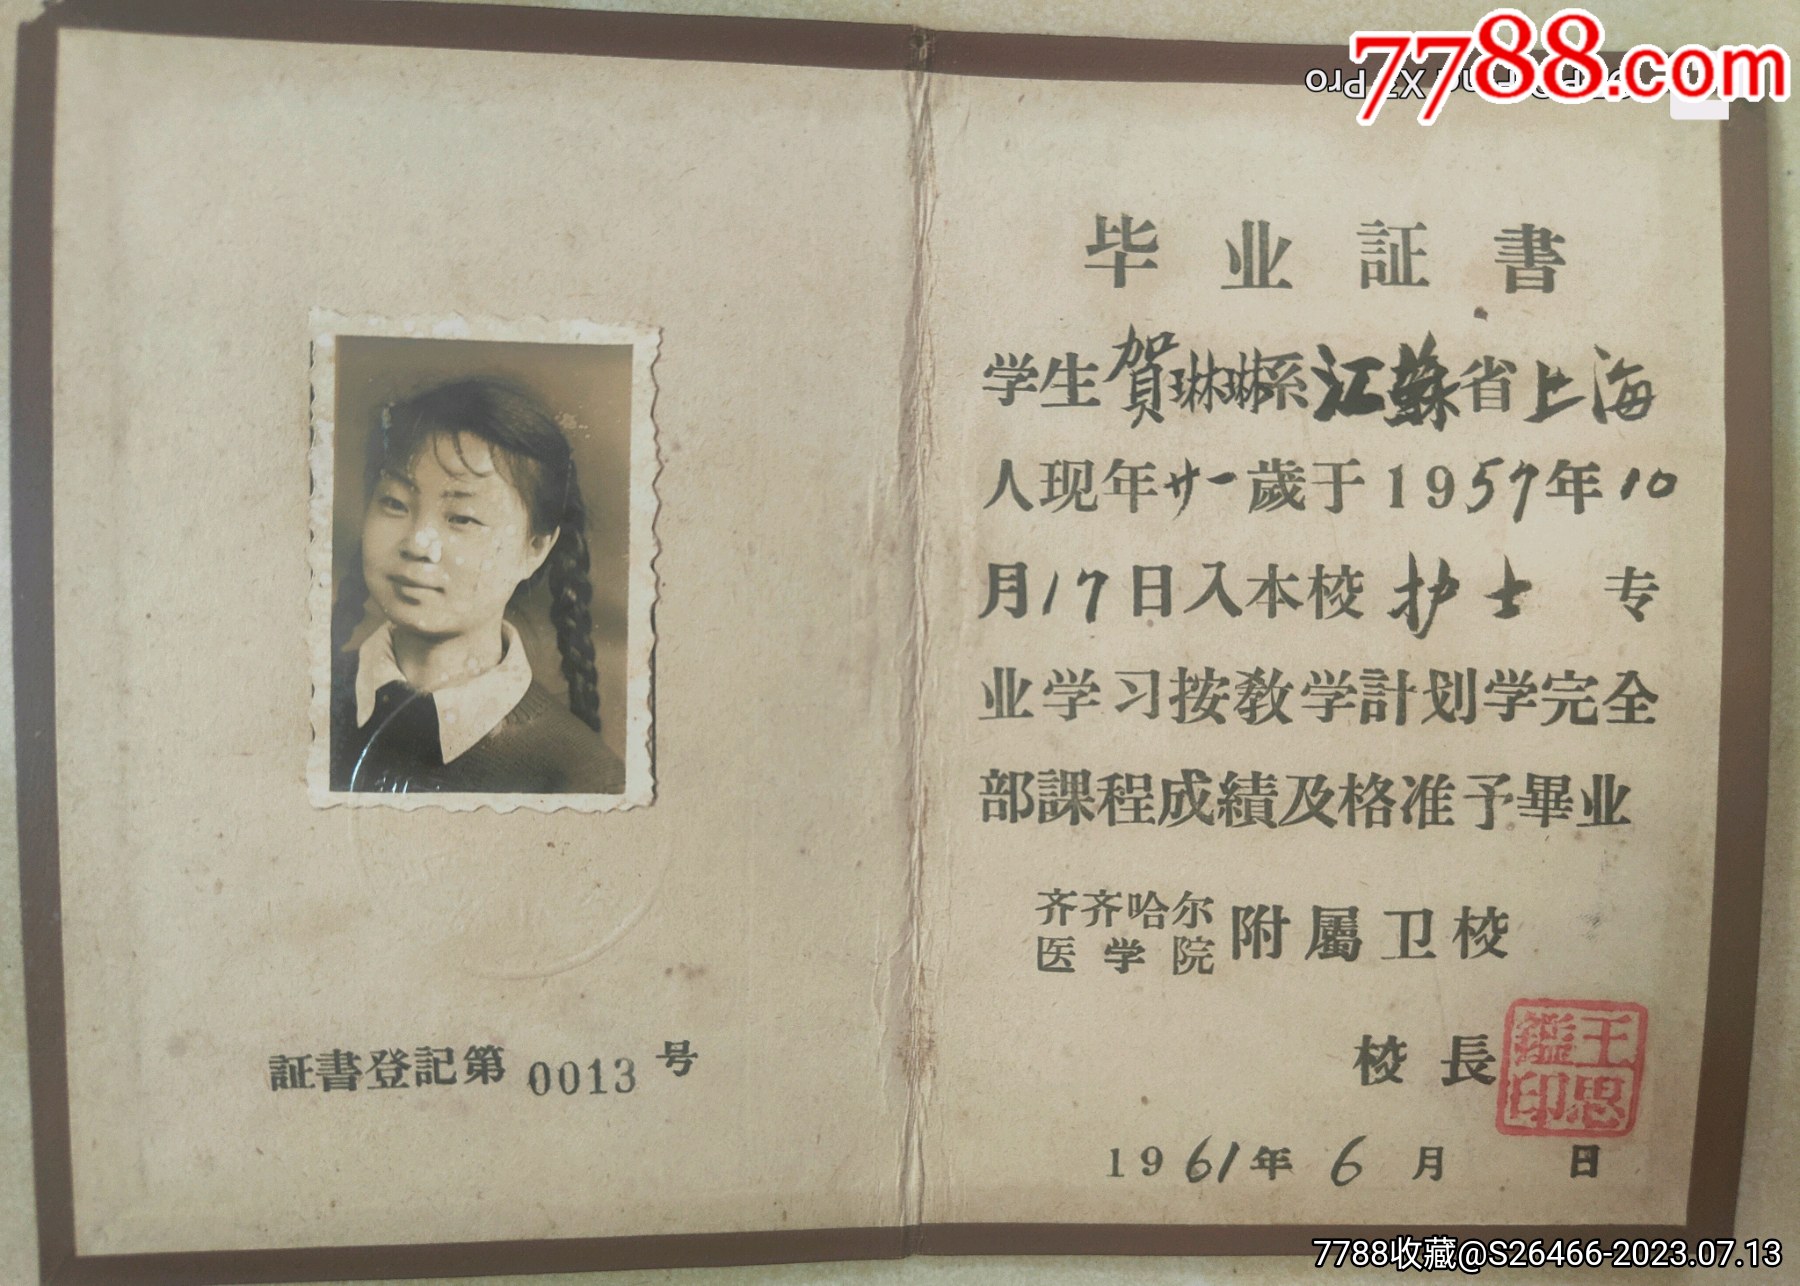 7788.com
毕业証書
学生賀琳琳系江蘇省上海
人现年廿一歲于1957年10
月17日入本校护士 专
业学习按教学計划学完全
部課程成績及格准予畢业
齐齐哈尔
医学院
附屬卫校
校長
王思鑑印
1961年6月 日
証書登記第0013号
7788收藏@S26466-2023.07.13